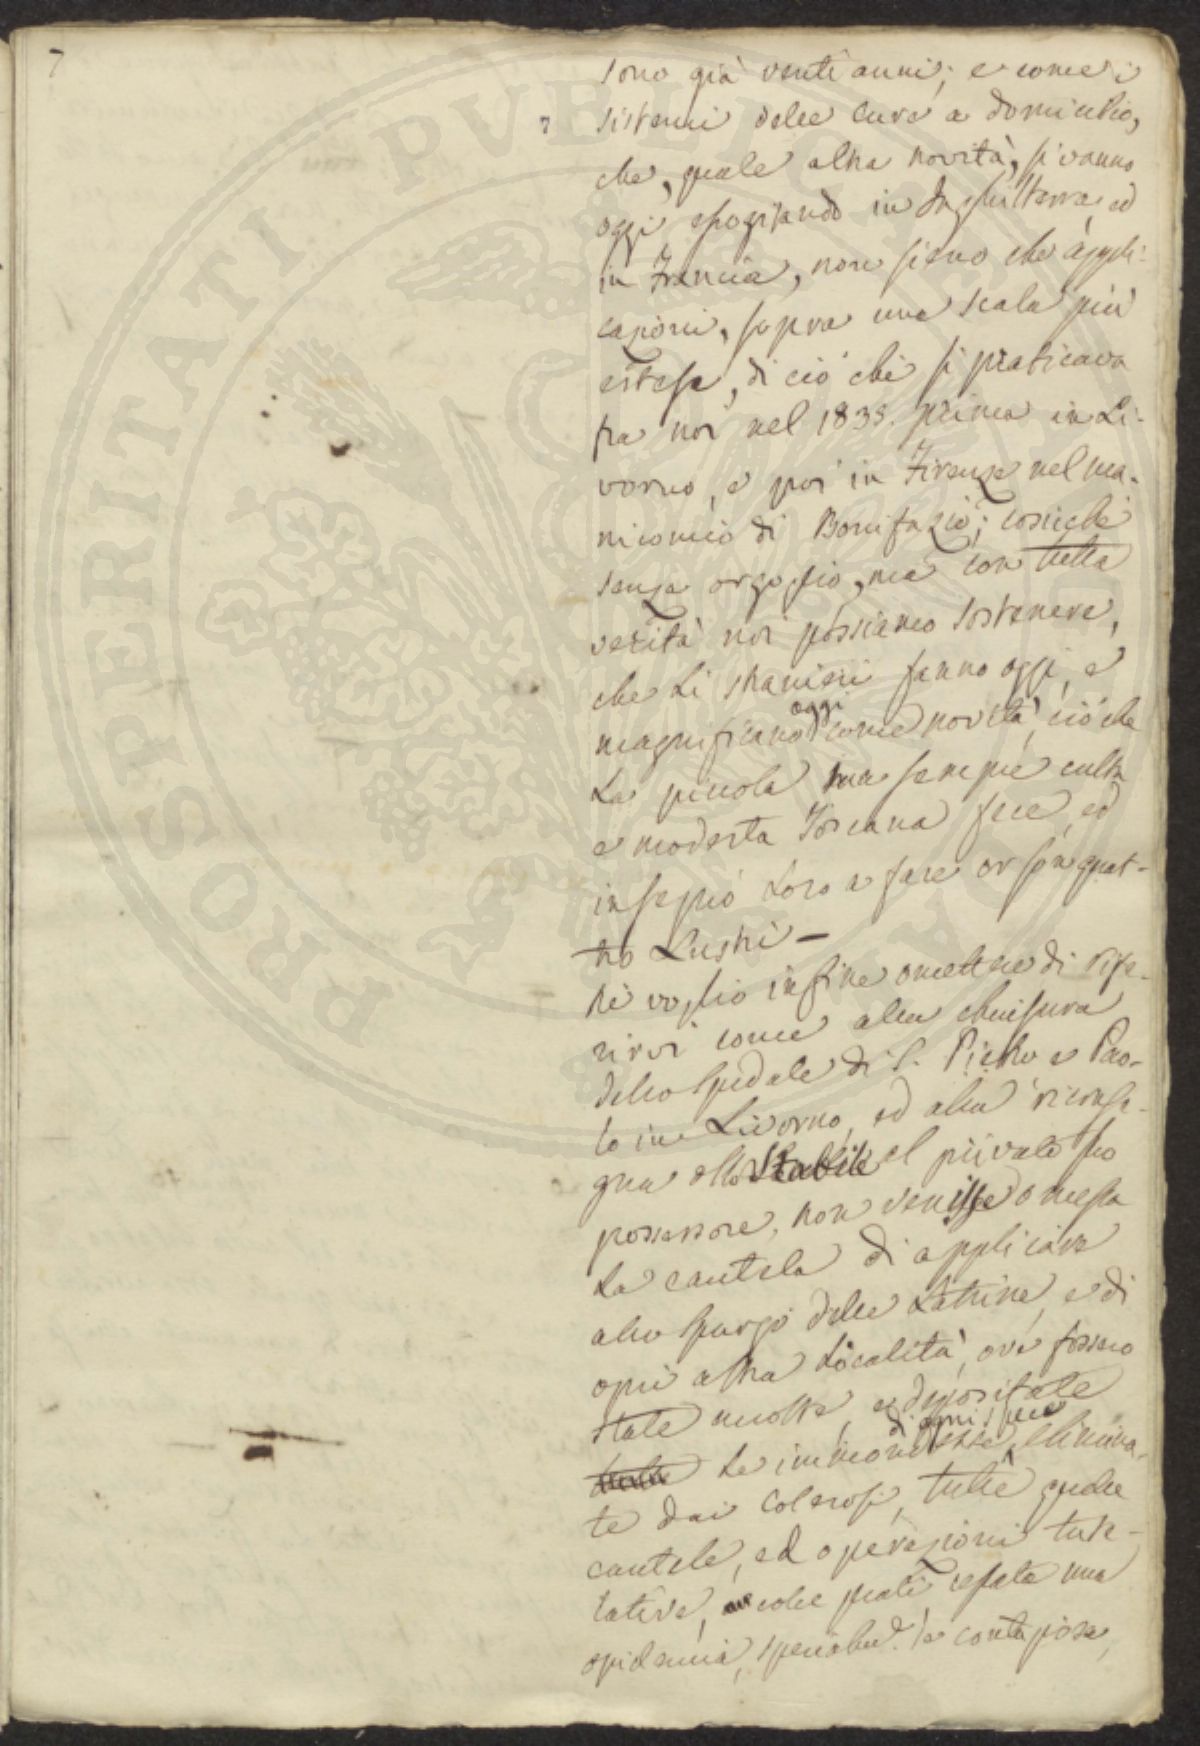 7
sono già venti anni; e come i
7 sistemi delle cure a domicilio,
che, quale altra novità, si vanno
oggi spogliando in Inghilterra, ed
in Francia, non sieno che appli-
cazioni, sopra una scala più
estesa, di ciò che si praticava
fra noi nel 1835. prima in Li-
vorno, e poi in Firenze nel ma-
nicomio di Bonifazio; cosicchè
senza orgoglio, ma con tutta
verità noi possiamo sostenere,
che li stranieri fanno oggi, e
magnificano oggi come novità, ciò che
la piccola ma sempre culta
e modesta Toscana fece, ed
insegnò loro a fare or son quat-
tro Lustri —
Nè voglio infine omettere di rife-
rirvi come alla chiusura
dello Spedale di S. Pietro e Pao-
lo in Livorno, ed alla riconse-
gna dello Stabile al privato suo
possessore, non venisse omessa
la cautela di applicare
allo spurgo delle Latrine, e di
ogni altra Località, ove fossero
state accolte, e depositate
le immondezze di ogni specie, elimina-
te dai Colerosi, tutte quelle
cautele, ed operazioni tute-
lative, colle quali cessata una
epidemia, specialmᵉ. se contagiosa,
PROSPERITATI PVBLICAE